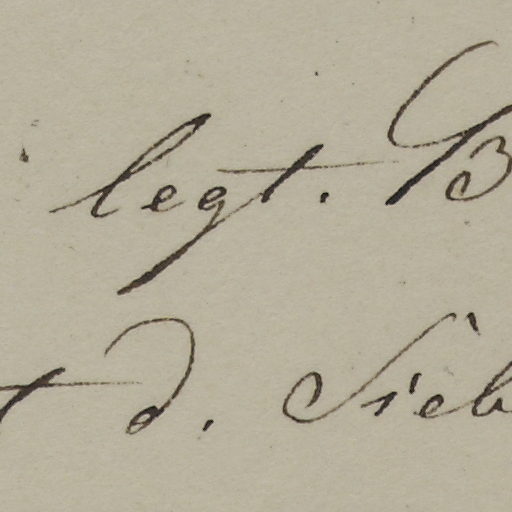 legt. B
t d. Sieb